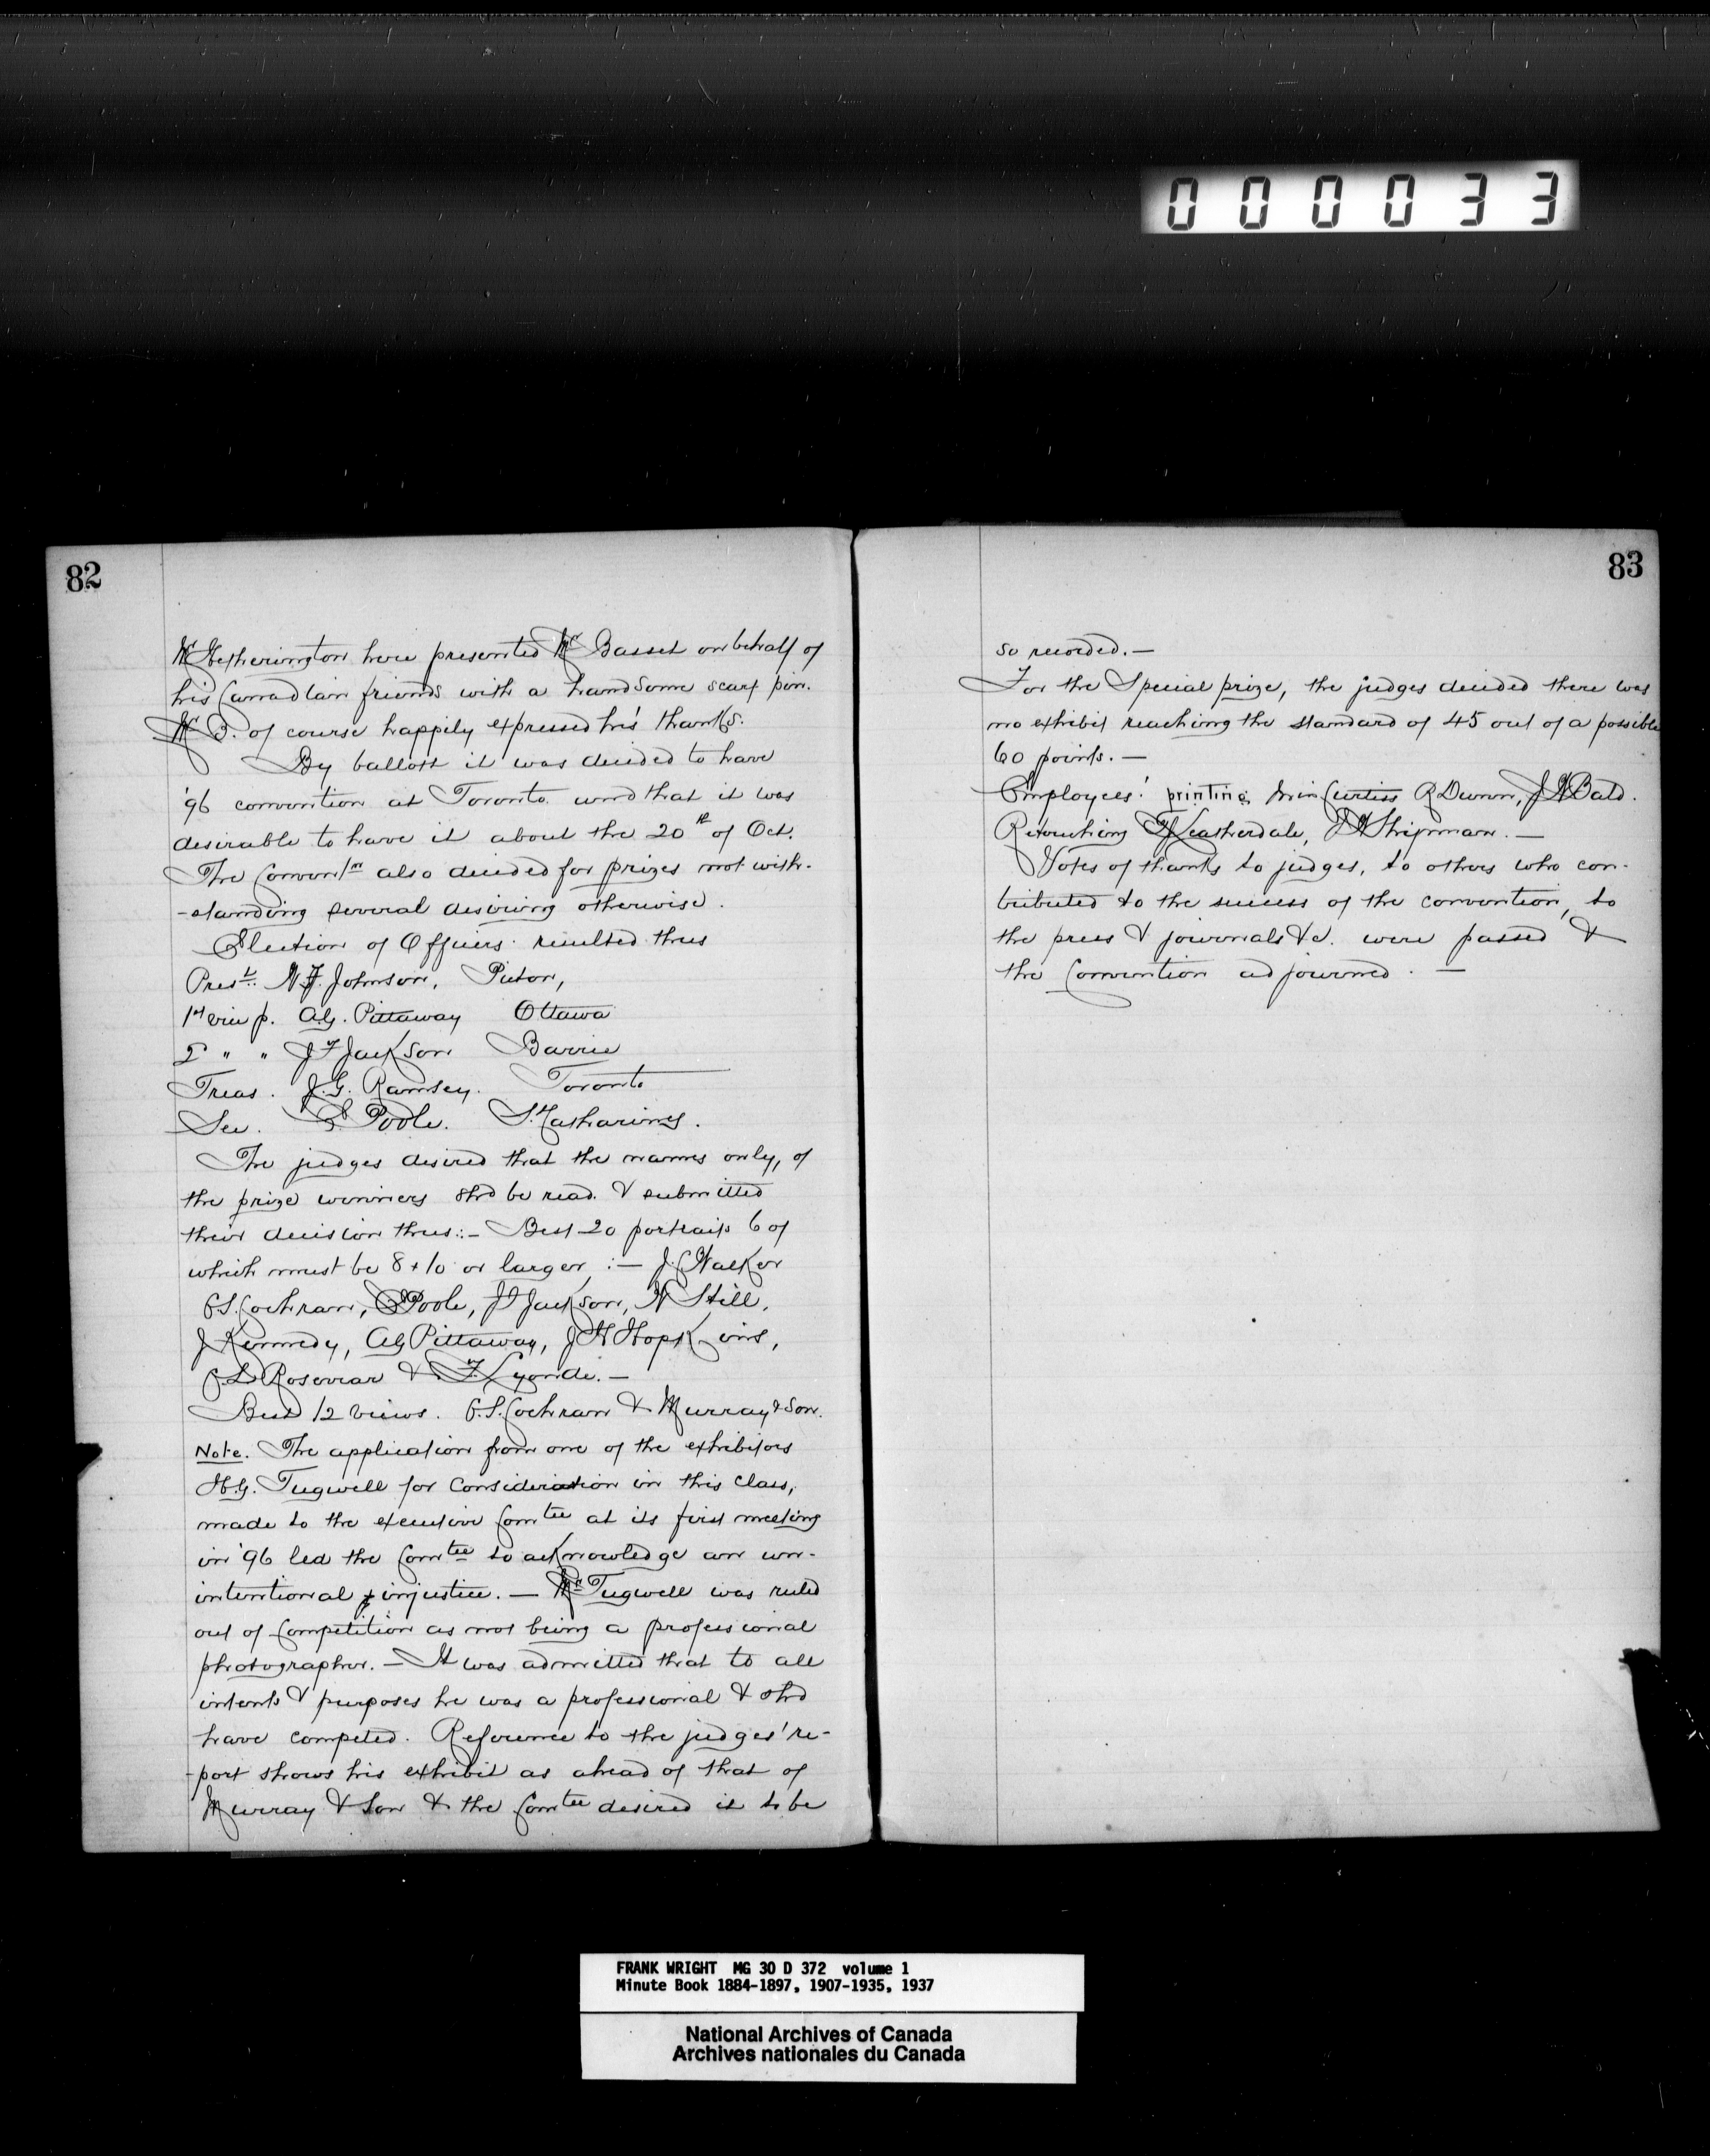 000033
82
Mr Hetherington here presented Mr Basset on behalf of
his Canadian friends with a handsome scarf pin.
Mr B. of course happily expressed his thanks.
By ballott it was decided to have
'96 convention at Toronto and that it was
desirable to have it about the 20th of Oct.
The Convontn also decided for prizes not with-
-standing several desiring otherwise.
Election of Officers resulted thus
Prest. N. F. Johnson, Picton,
1st vice p. A.G. Pittaway Ottawa
2d " " J F Jackson Barrie
Treas. J. G. Ramsey. Toronto
Sec. E Poole. St Catharines.
The judges desired that the names only, of
the prize winners shd be read & submitted
their decision thus:- Best 20 portraits 6 of
which must be 8 + 10 or larger :- J. C Walker
G.S. Cochran, E Poole, J F Jackson, W Still,
J Kennedy, AG Pittaway, J H Hopkins,
P. L Rosevear & F. Lyonde.-
Best 12 views. G.S. Cochran & Murray & Son.
Note. The application from one of the exhibitors
H.G. Tugwell for Consideration in this class,
made to the executive Comtee at its first meeting
in '96 led the Comtee to acknowledge an un-
intentional injustice. - Mr Tugwell was ruled
out of Competition as not being a professional
photographer. - It was admitted that to all
intents & purposes he was a professional & shd
have competed. Reference to the judges' re-
-port shows his exhibit as ahead of that of
Murray & Son & the Comtee desired it to be
83
so recorded. -
For the Special prize, the judges decided there was
no exhibit reaching the standard of 45 out of a possible
60 points. -
Employees' printing Curtiss R Dunn, J H Bald.
Retouching Leatherdale, Shipman. -
Votes of thanks to judges, to others who con-
tributed to the success of the convention, to
the press & journals &c. were passed &
the Convention adjourned. -
FRANK WRIGHT MG 30 D 372 volume 1
Minute Book 1884-1897, 1907-1935, 1937
National Archives of Canada
Archives nationales du Canada